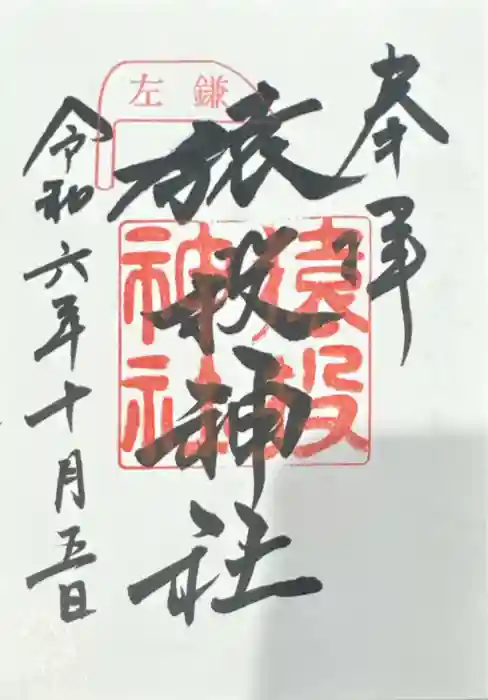 奉拝
左鎌
猿投神社
猿投神社
令和六年十月五日